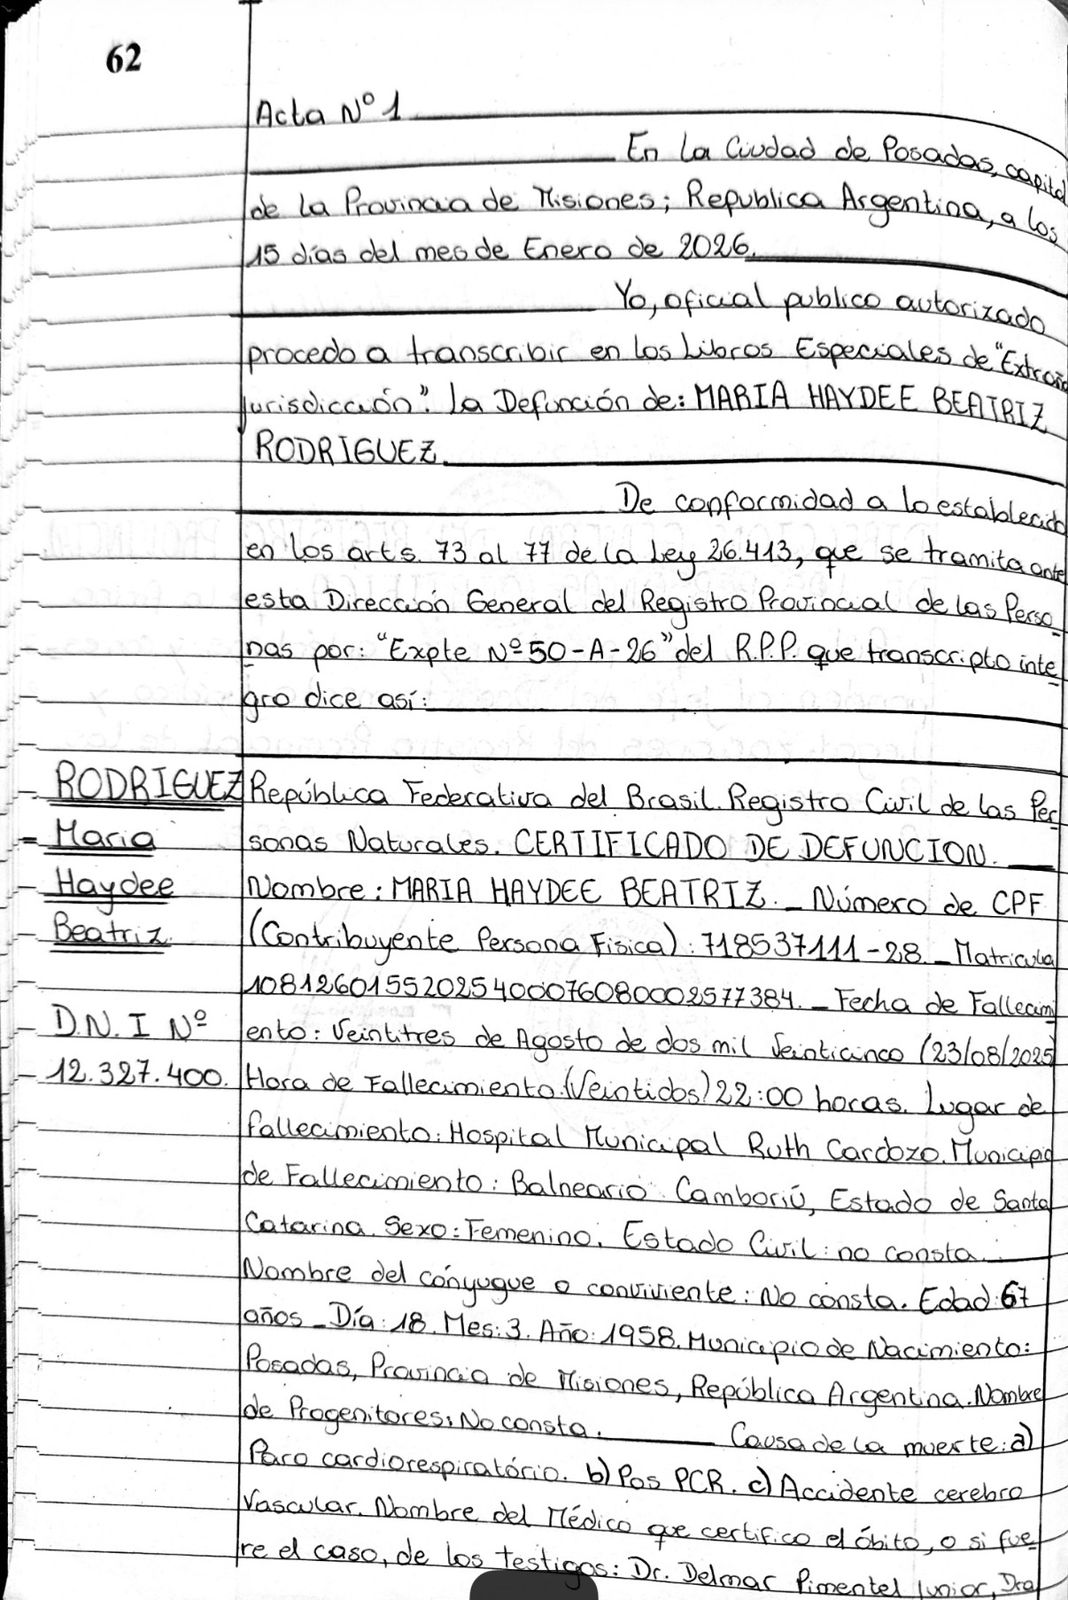 62
Acta Nº 1
En la Ciudad de Posadas, capital
de la Provincia de Misiones; Republica Argentina, a los
15 días del mes de Enero de 2026.
Yo, oficial publico autorizado
procedo a transcribir en los Libros Especiales de "Extraña
jurisdicción". La Defunción de: MARIA HAYDEE BEATRIZ
RODRIGUEZ
De conformidad a lo establecido
en los arts. 73 al 77 de la Ley 26.413, que se tramita ante
esta Dirección General del Registro Provincial de las Perso_
nas por: "Expte Nº 50-A-26" del R.P.P. que transcripto inte_
gro dice así:
RODRIGUEZ
Maria
Haydee
Beatriz
D.N.I Nº
12.327.400.
República Federativa del Brasil. Registro Civil de las Per_
sonas Naturales. CERTIFICADO DE DEFUNCION.
Nombre: MARIA HAYDEE BEATRIZ._ Número de CPF
(Contribuyente Persona Física): 718537111-28._ Matricula
10812601552025400076080002577384._ Fecha de Fallecim
ento: Veintitres de Agosto de dos mil Veinticinco (23/08/2025
Hora de Fallecimiento: (Veintidos) 22:00 horas. Lugar de
fallecimiento: Hospital Municipal Ruth Cardozo. Municipio
de Fallecimiento: Balneario Camboriú, Estado de Santa
Catarina. Sexo: Femenino. Estado Civil: no consta.
Nombre del cónyugue o conviviente: No consta. Edad: 67
años_ Día: 18. Mes: 3. Año: 1958. Municipio de Nacimiento:
Posadas, Provincia de Misiones, República Argentina. Nombre
de Progenitores: No consta. Causa de la muerte: a)
Paro cardiorespiratório. b) Pos PCR. c) Accidente cerebro
Vascular. Nombre del Médico que certifico el óbito, o si fue_
re el caso, de los testigos: Dr. Delmar Pimentel Junior, Dra